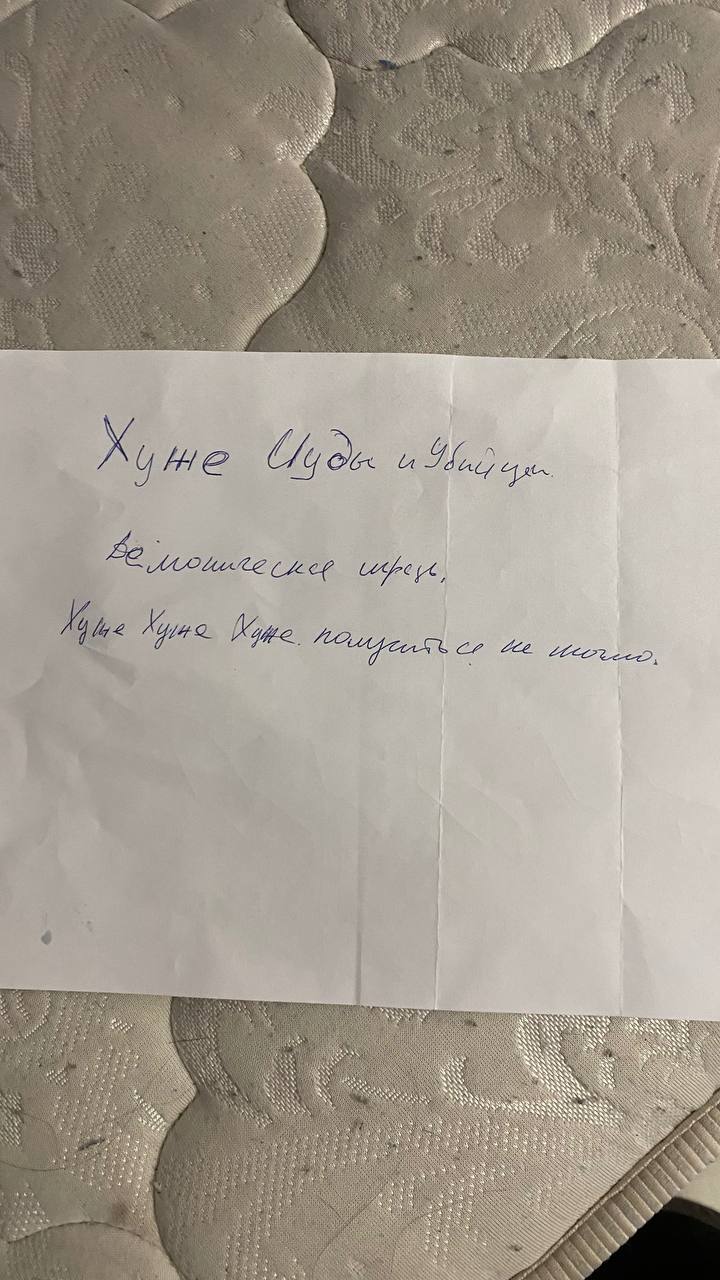 Хуже Иуды и Убийцы.
Демоническая мразь.
Хуже Хуже Хуже. получиться не могло.